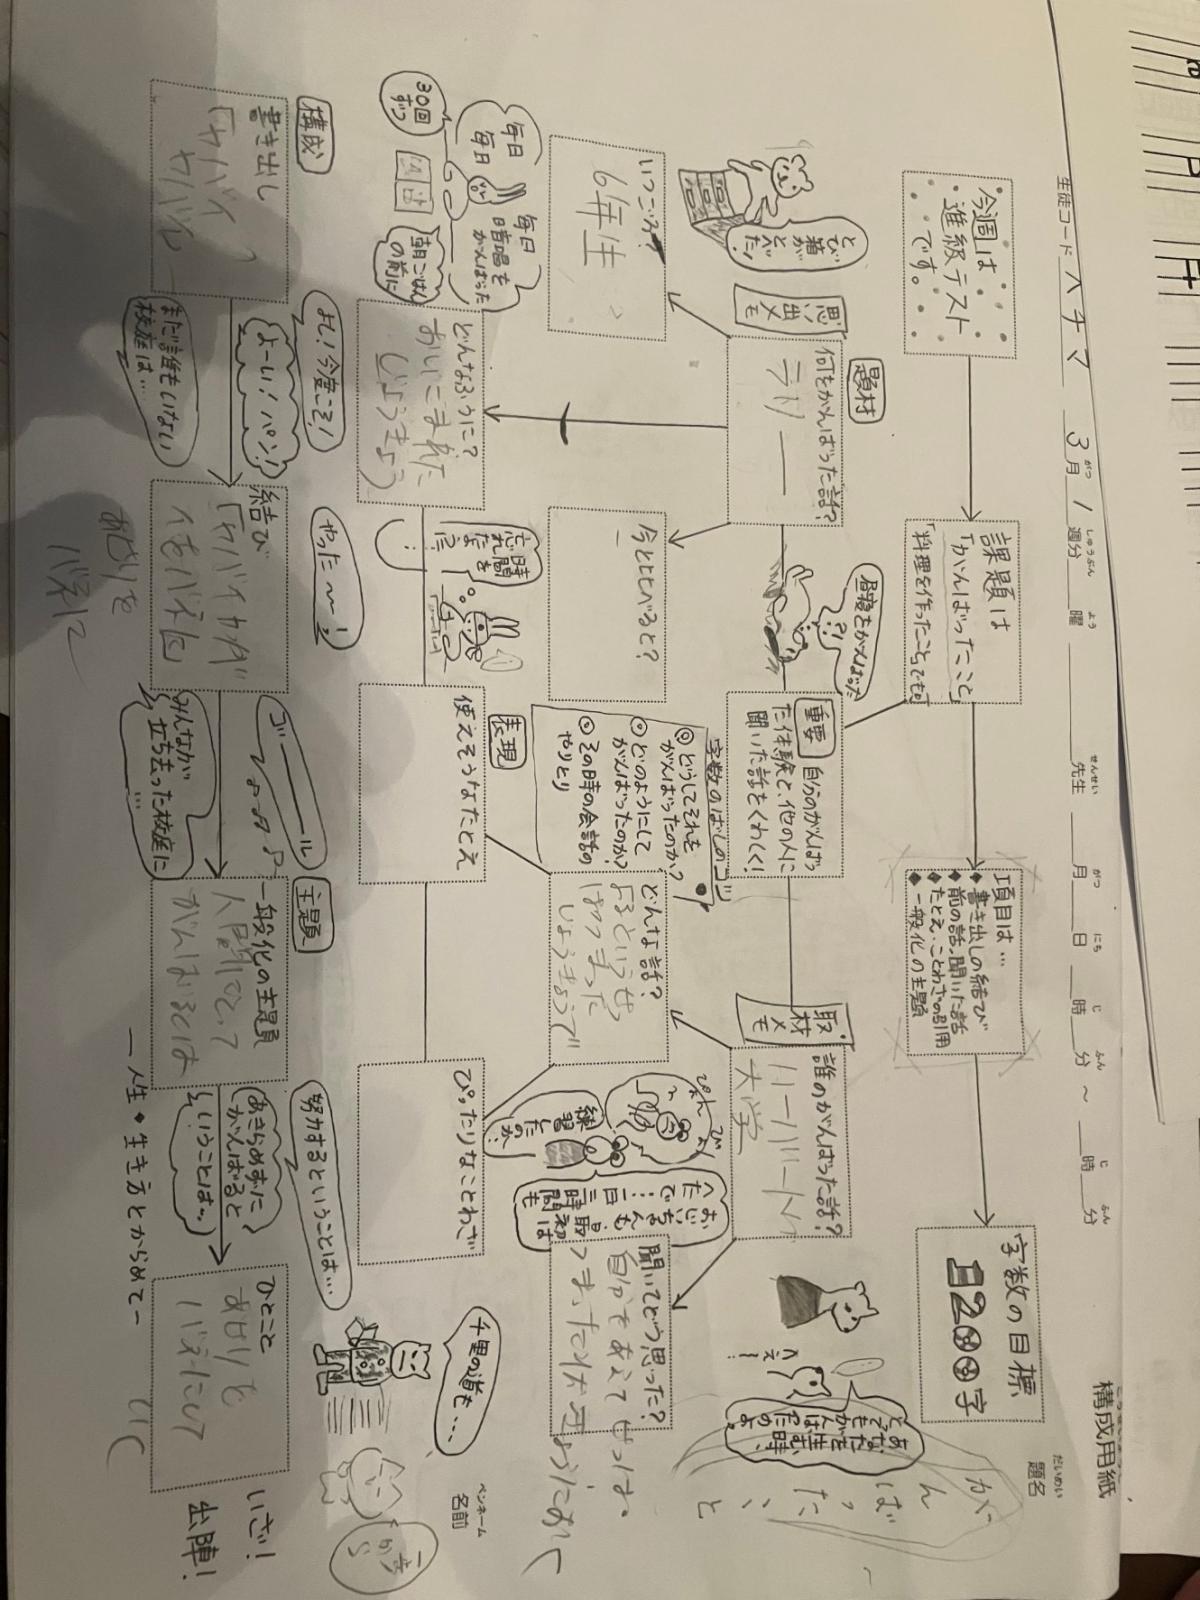 構成用紙
生徒コード ハチマ 3月1週分 曜 先生 月 日 時 分 ～ 時 分
題名
がんばったこと
今週は
進級テスト
です。
課題は
「がんばったこと」
「料理を作ったことでも可」
項目は…
◆書き出しの結び
◆前の話、聞いた話
◆たとえ、ことわざの引用
◆一般化の主題
字数の目標
1200字
とび箱が
とべた！
思出メモ
題材
何をがんばった話？
昼寝をがんばった
重要
自分のがんばっ
た体験と、他の人に
聞いた話をくわしく！
取材メモ
誰のがんばった話？
大学
へえー！
あなたを
生む時、
とても
がんばったのよ。
いつごろ？
6年生
今とくらべると？
字数のばしのコツ
◎どうしてそれを
がんばったのか？
◎どのようにして
がんばったのか？
◎その時の会話の
やりとり
どんな話？
聞いてどう思った？
練習
したのか？
おじいちゃんも、最初は
へたで…一日三時間も
毎日
毎日
30回
ずつ
毎日
暗唱を
がんばった
朝ごはん
の前に
どんなふうに？
おいこまれた
じょうきょう
時間を
忘れ
表現
使えそうなたとえ
ぴったりなことわざ
千里の道も…
ペンネーム
名前
構成
書き出し
「ヤバイ
ヤバイ
よし！今度こそ！
よーい！パン！
まだ誰もいない
校庭は…
結び
やった～～！
ゴーール
みんなが
立ち去った校庭に
…
主題
一般化の主題
人間にとって
がんばるとは
努力するということは…
あきらめずに
がんばると
いうことは…
ー人生・生き方とからめてー
ひとこと
あせりを
バネにして
いざ！
出陣！